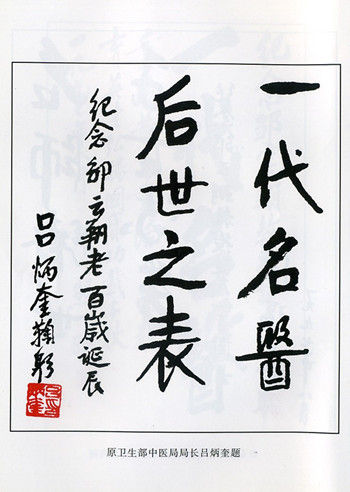 一代名醫
后世之表
纪念邹云翔老百岁诞辰
吕炳奎鞠躬
原卫生部中医局局长吕炳奎题